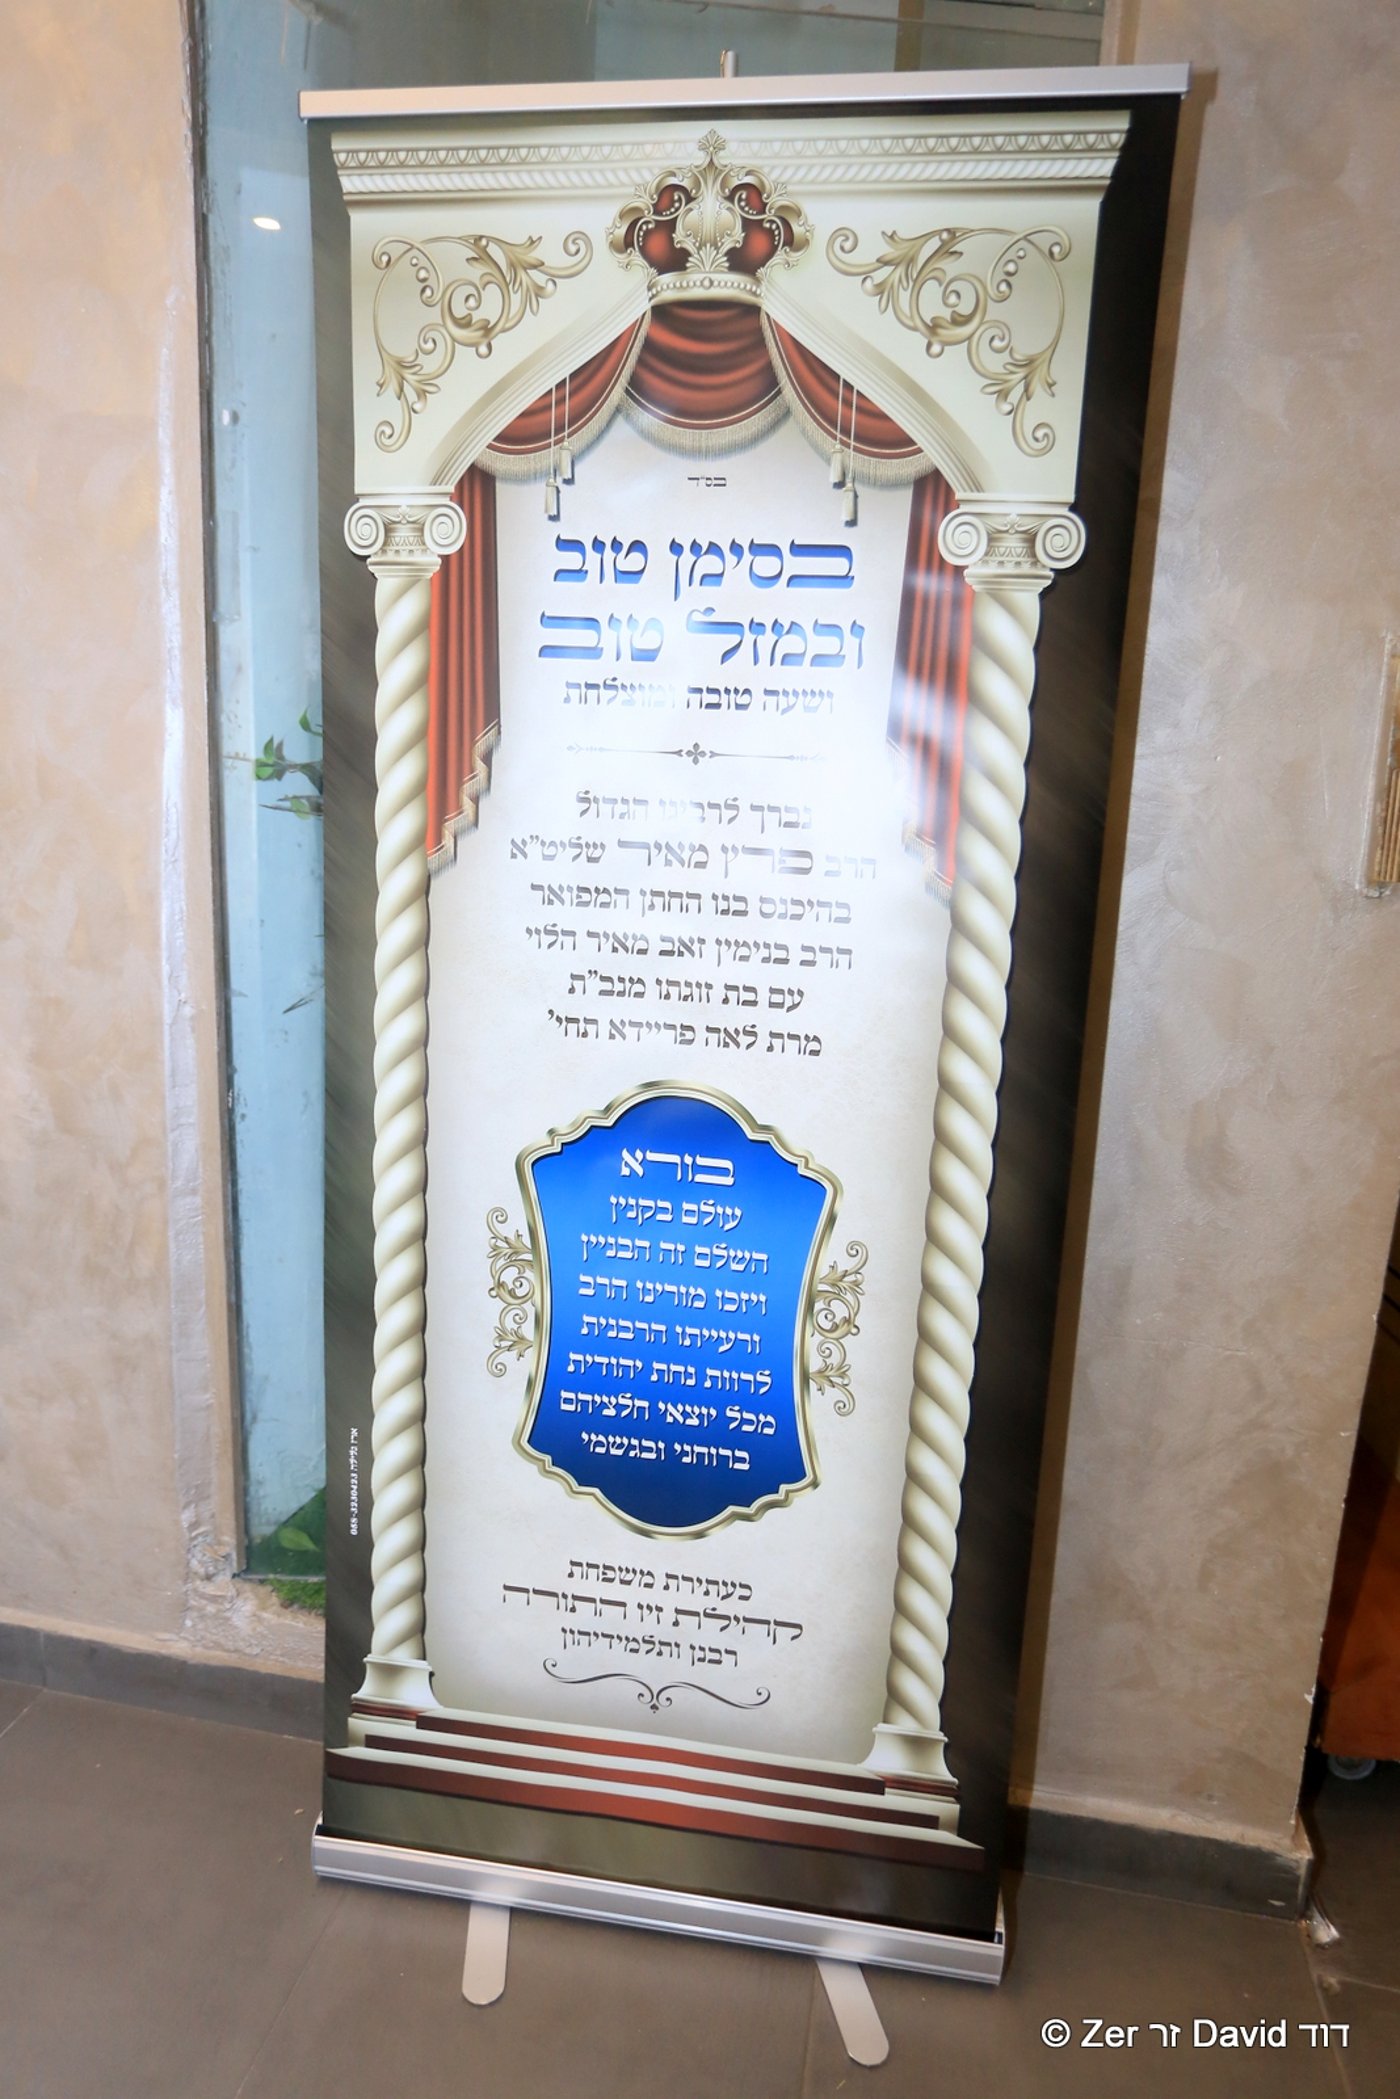 בס"ד
בסימן טוב
ובמזל טוב
ושעה טובה ומוצלחת
נברך לרבינו הגדול
הרב פרץ מאיר שליט"א
בהיכנס בנו החתן המפואר
הרב בנימין זאב מאיר הלוי
עם בת זוגתו מנב"ת
מרת לאה פריידא תחי'
בורא
עולם בקנין
השלם זה הבניין
ויזכו מורינו הרב
ורעייתו הרבנית
לרוות נחת יהודית
מכל יוצאי חלציהם
ברוחני ובגשמי
כעתירת משפחת
קהילת זיו התורה
רבנן ותלמידיהון
058-3230423
© Zer זר David דוד